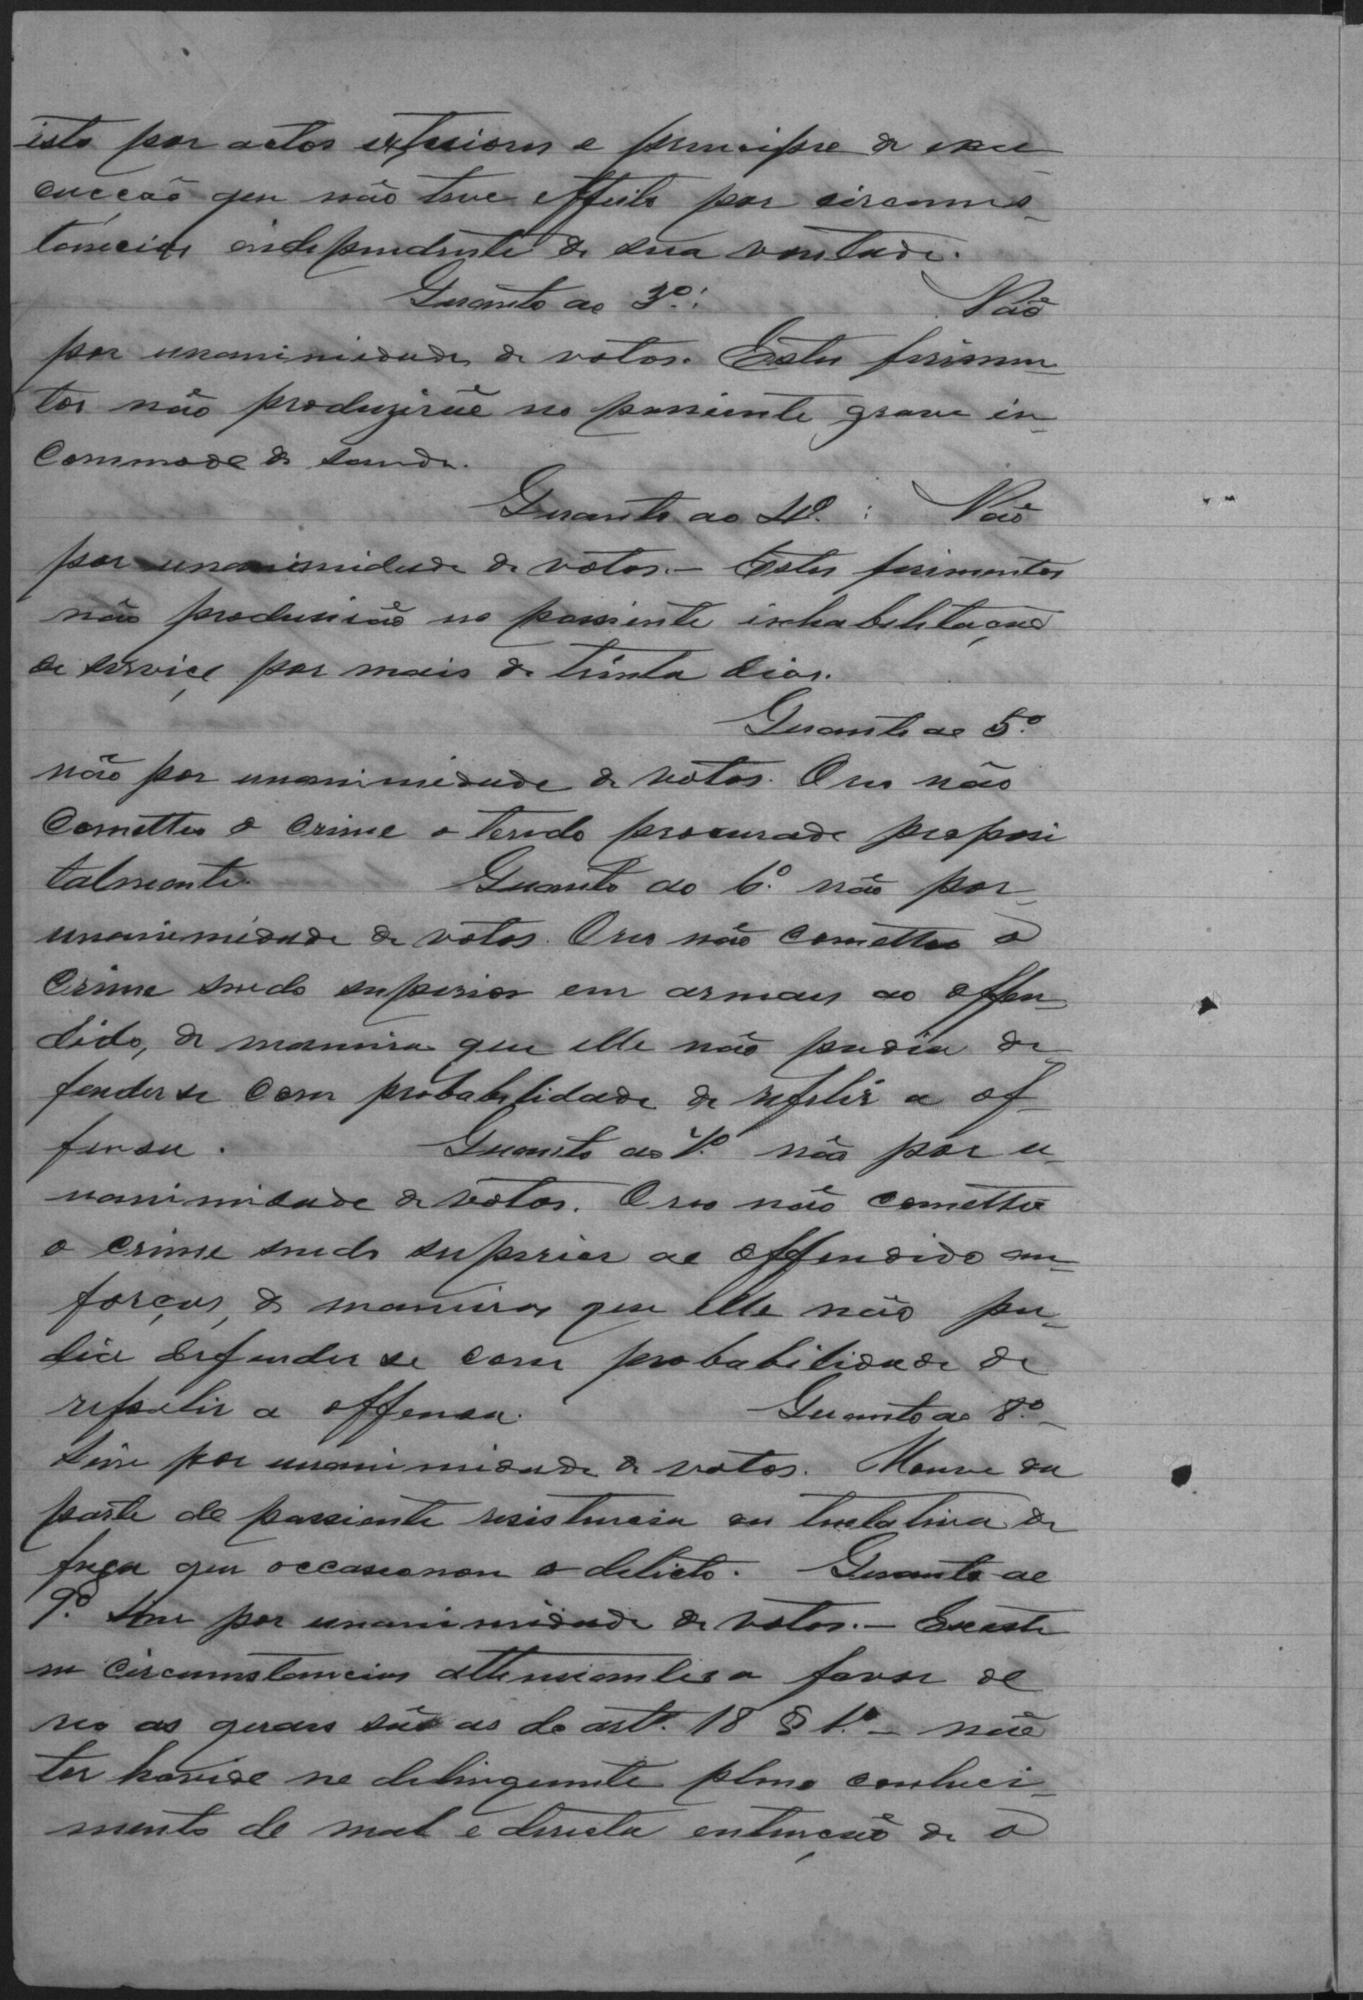 isto por actos exteriores e principio de exe
cucção que não teve effeito por circums-
tancias independente de sua vontade.
Quanto ao 3º: Não
por unanimidade de votos. Estes ferimen-
tos não produzirão no passiente grave in-
commodo de saude.
Quanto ao 4º. : Não
por unanimidade de votos. – Estes ferimentos
não produsirão no passiente inhabilitação
de serviço por mais de trinta dias.
Quanto ao 5º
não por unanimidade de votos. O reo não
cometteo o crime o tendo procurado proposi
talmente. Quanto ao 6º. não por-
unanimidade de votos. O reo não cometteo o
crime sendo superior em armas ao offen-
dido, de maneira que elle não pudia de-
fender se com probabelidade de repelir a of-
fensa. Quanto ao 7º. não por u-
nanimidade de votos. O reo não cometteo
o crime sendo superior ao offendido em-
forças, de maneira que elle não pu-
dia defender se com probabilidade de
repelir a offensa. Quanto ao 8º-
Sim por unanimidade de votos. Houve da
parte do passiente resistencia ou tentativa de
fuga que occasionou o delicto. Quanto ao
9º. Sim por unanimidade de votos. – Existe
m circumstancias attenuantes a favor do
reo as quaes são as do art. 18 § 1.º – não
ter havido no delinquente pleno conheci-
mento do mal e directa entenção de o